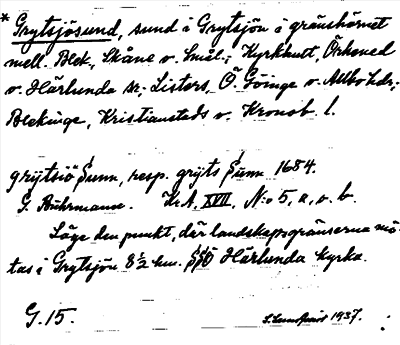 * Grytsjösund, sund i Grytsjön i gränshörnet
mell. Blek., Skåne o. Smål.; Kyrkhult, Örkened
o. Härlunda sn:r; Listers, Ö. Göinge o. Allbo hdr;
Blekinge, Kristianstads o. Kronob. l.
grÿtsiö Sunn, resp. grÿts Sunn 1684.
G. Buhrmann. Kr.A. XVII, N:o 5, a, o. b.
Läge den punkt, där landskapsgränserna mö-
tas i Grytsjön 8 1/2 km. SSÖ Härlunda kyrka.
G. 15.
1937.